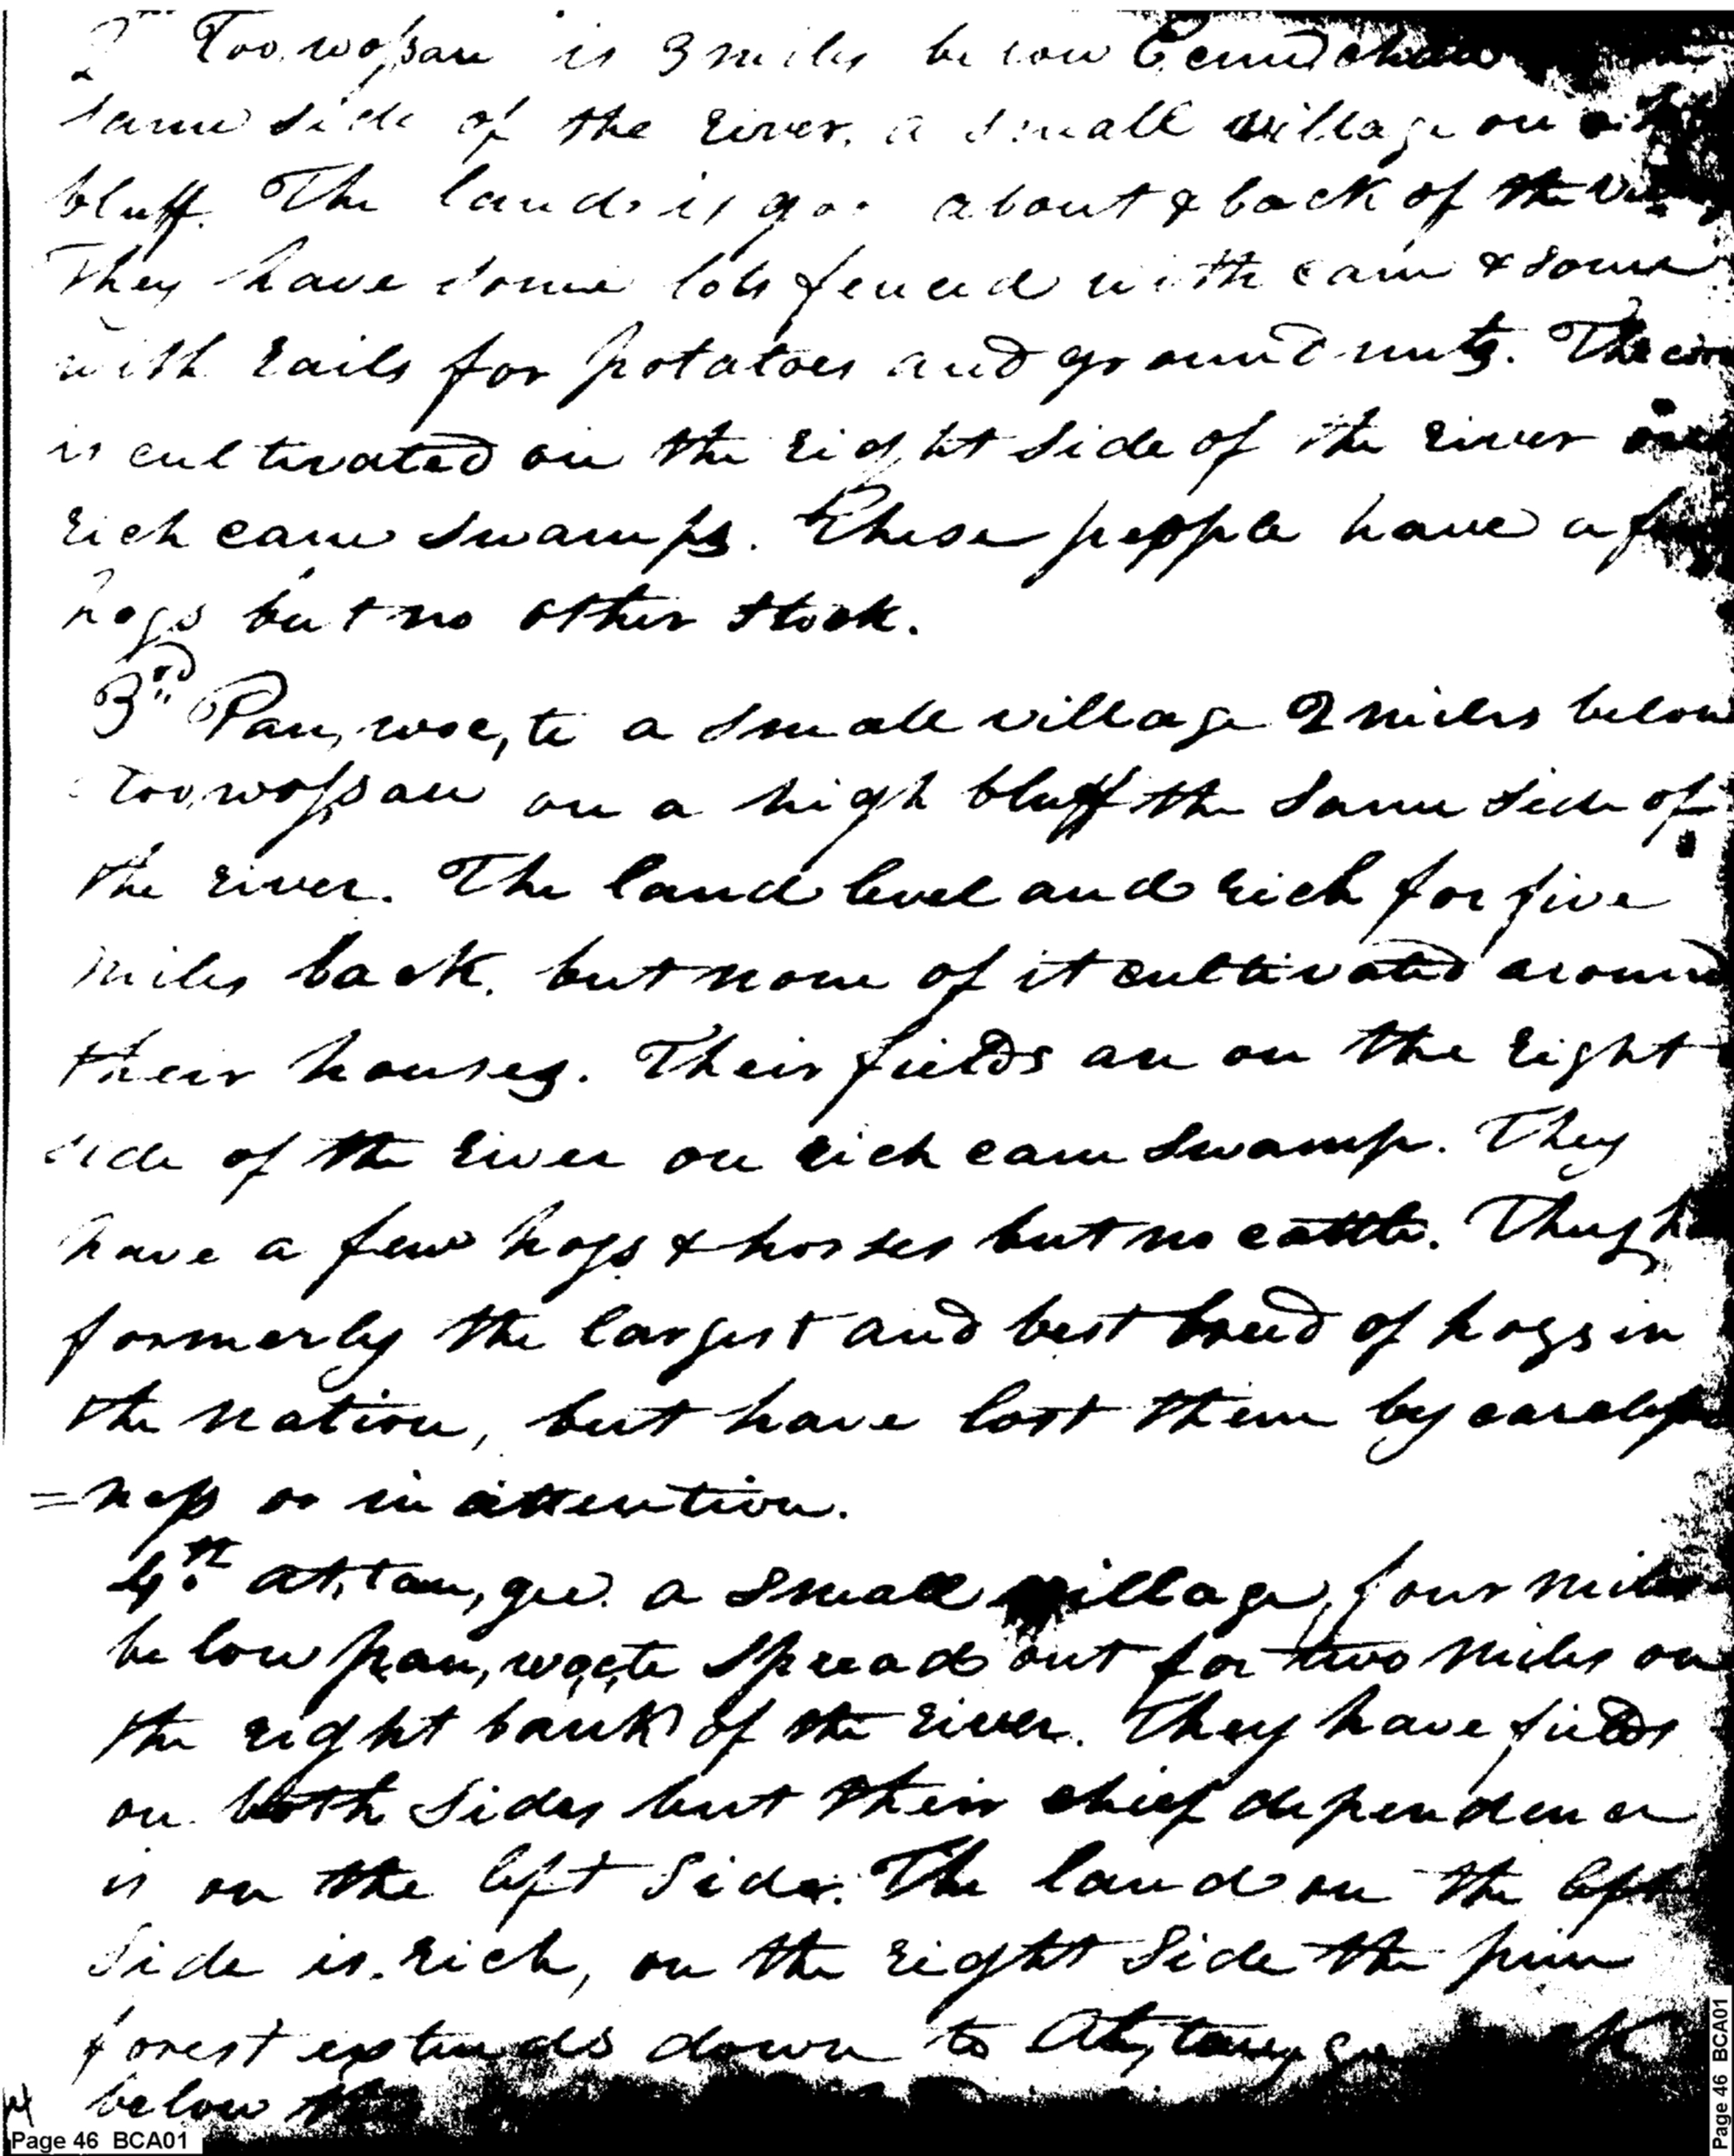 2nd Too,wossau is 3 miles below Ecunchau
same side of the river. a small village on a
bluff. The land is goo about & back of the
They have some lots fenced with cane & some
with rails for potatoes and ground nuts. The corn
is cultivated on the right side of the river on
rich cane swamps. These people have a few
hogs but no other stock.
3rd Pau,woc,te a small village 2 miles below
Too,wossau on a high bluff the same side of
the river. The land level and rich for five
miles back, but none of it cultivated around
their houses. Their fields are on the right
side of the river on rich cane swamp. They
have a few hogs & horses but no cattle. They h
formerly the largest and best breed of hogs in
the nation, but have lost them by careless
=ness or inattention.
4th At,tau,gee. a small village, four miles
below pau,woc,te spread out for two miles on
the right bank of the river. They have fields
on both sides but their chief dependence
is on the left side. The land on the left
side is rich, on the right side the pine
forest extends down to At,tau,gee
below the
Page 46 BCA01
Page 46 BCA01